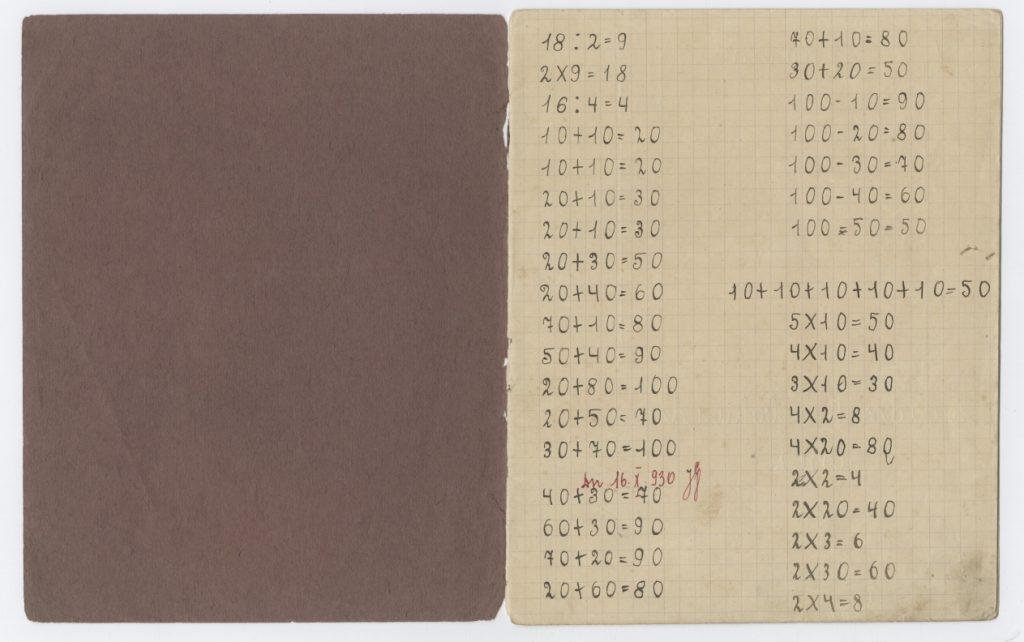 18:2=9
2X9=18
16:4=4
10+10=20
10+10=20
20+10=30
20+10=30
20+30=50
20+40=60
70+10=80
50+40=90
20+80=100
20+50=70
30+70=100
16.X.930
40+30=70
60+30=90
70+20=90
20+60=80
70+10=80
30+20=50
100-10=90
100-20=80
100-30=70
100-40=60
100=50=50
10+10+10+10+10=50
5X10=50
4X10=40
3X10=30
4X2=8
4X20=80
2X2=4
2X20=40
2X3=6
2X30=60
2X4=8